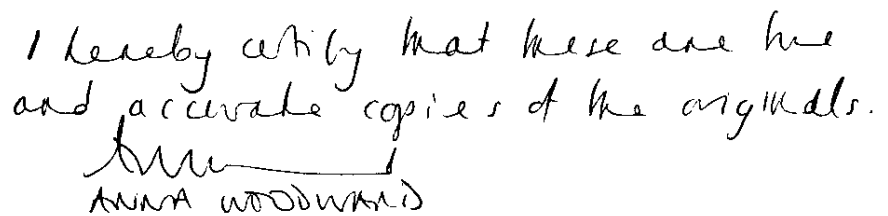 I hereby certify that these are true
and accurate copies of the originals.
ANNA WOODWARD